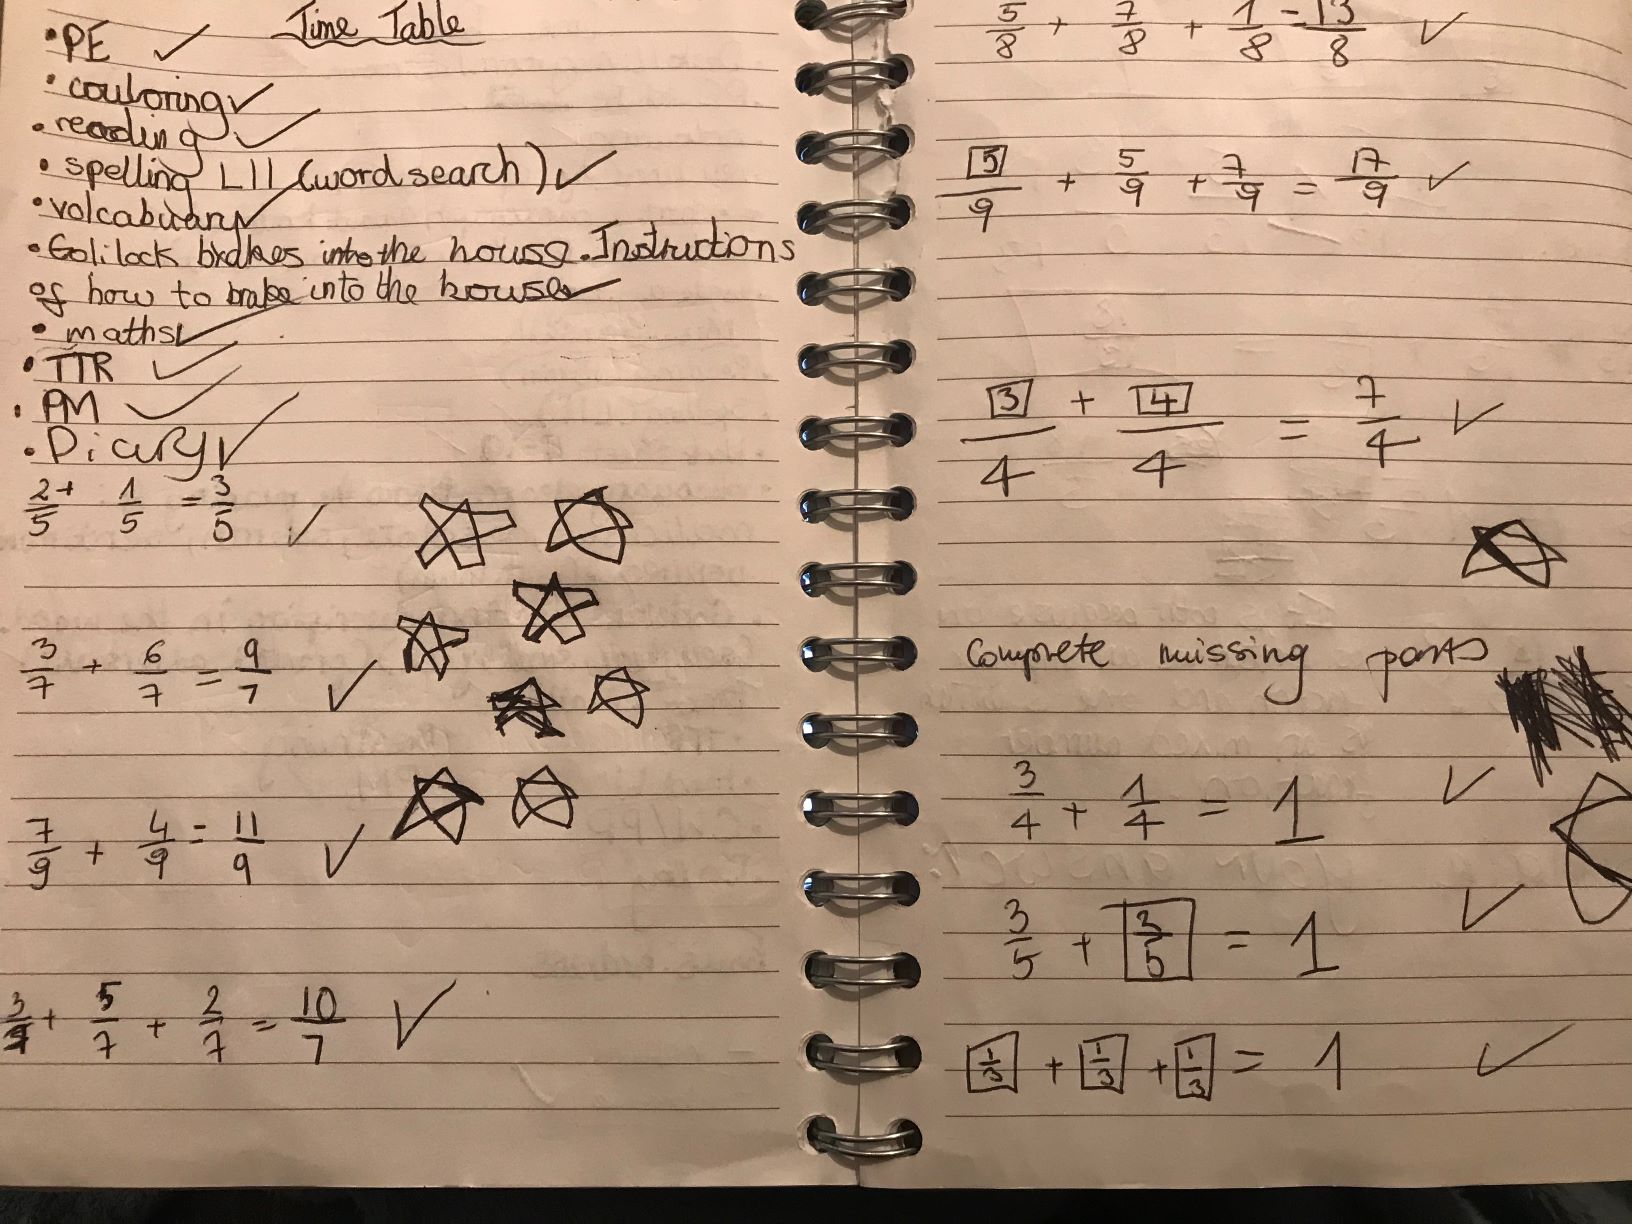 Time Table
• PE ✓
• couloring ✓
• reading ✓
• spelling L11 (word search) ✓
• volcabuary ✓
• Golilock brakes into the house. Instructions
of how to brake into the house ✓
• maths ✓
• TTR ✓
• PM ✓
• Diary ✓
2/5 + 1/5 = 3/5 ✓
3/7 + 6/7 = 9/7 ✓
7/9 + 4/9 = 11/9 ✓
3/7 + 5/7 + 2/7 = 10/7 ✓
5/8 + 7/8 + 1/8 = 13/8 ✓
5/9 + 5/9 + 7/9 = 17/9 ✓
3/4 + 4/4 = 7/4 ✓
Complete missing parts
3/4 + 1/4 = 1 ✓
3/5 + 3/5 = 1 ✓
1/3 + 1/3 + 1/3 = 1 ✓